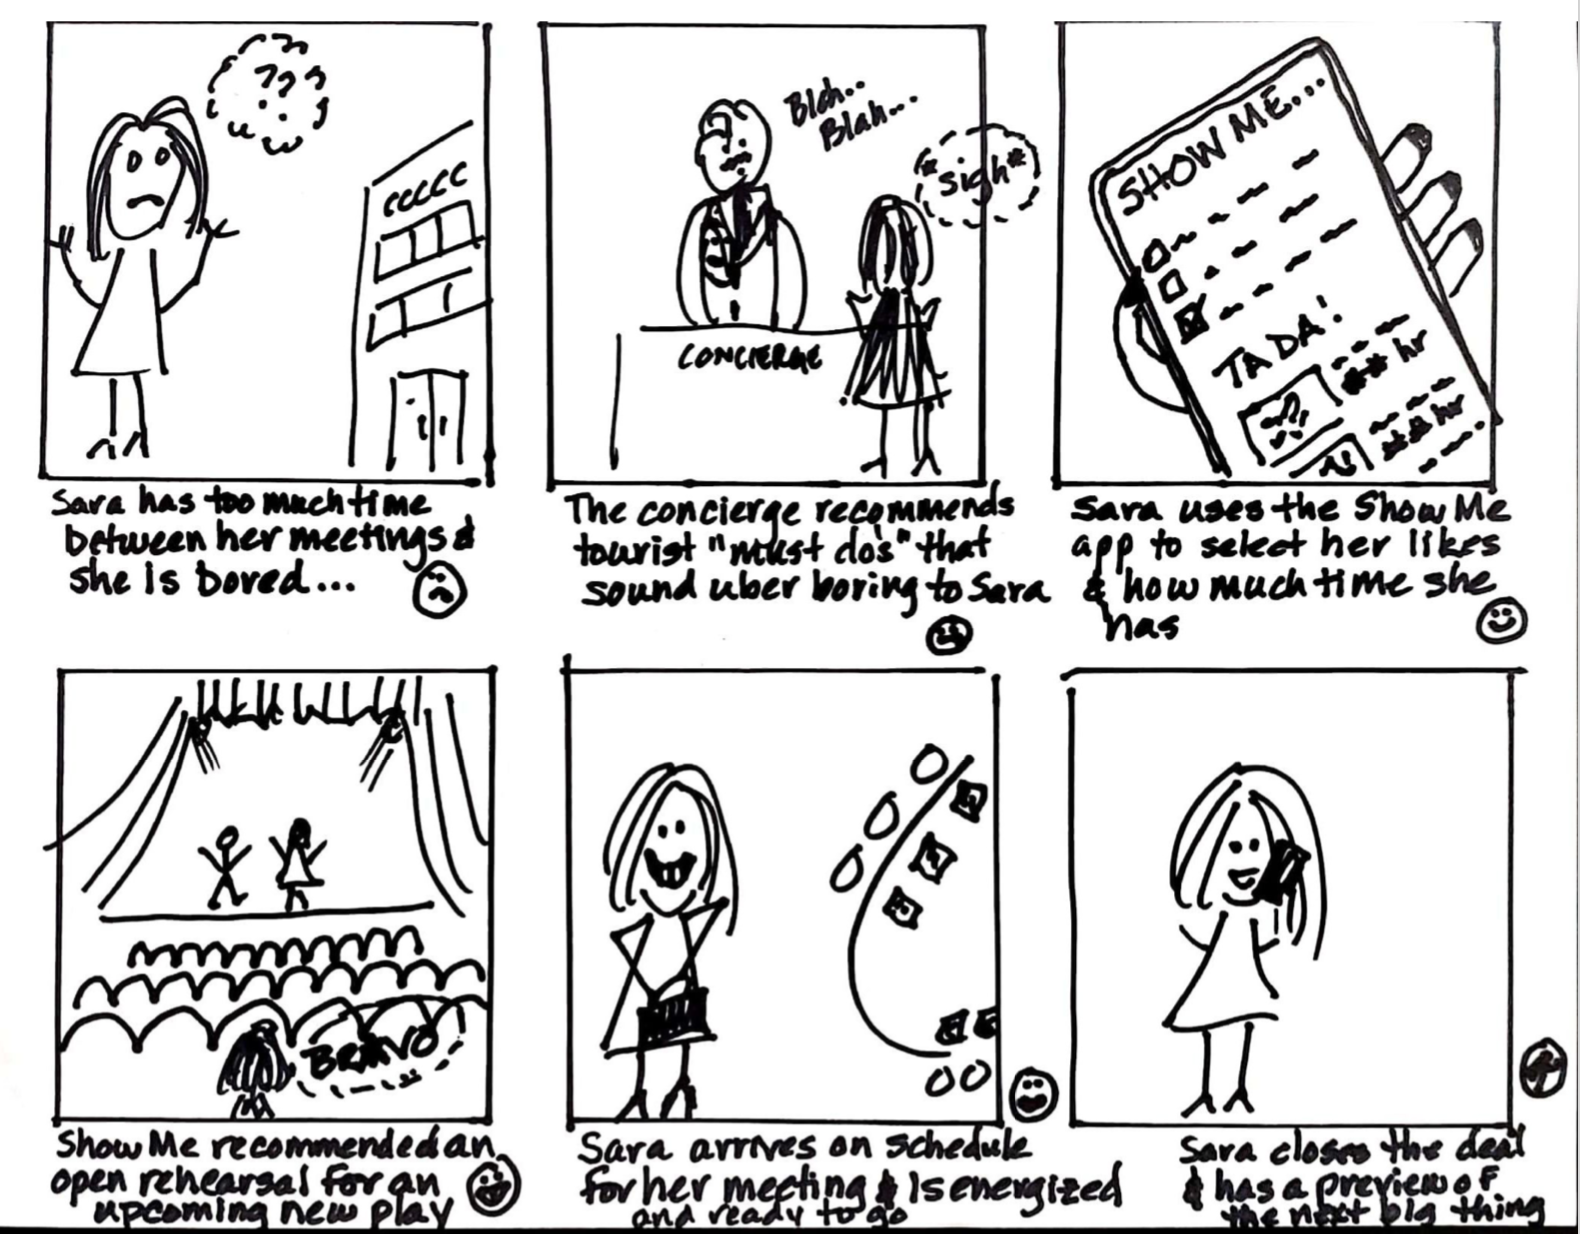 ???
CCCCC
Sara has too much time
between her meetings &
she is bored...
Blah..
Blah...
*sigh*
CONCIERGE
The concierge recommends
tourist "must do's" that
sound uber boring to Sara
SHOW ME...
TADA!
## hr
## hr
Sara uses the Show Me
app to select her likes
& how much time she
has
BRAVO
Show Me recommended an
open rehearsal for an
upcoming new play
Sara arrives on schedule
for her meeting & is energized
and ready to go
Sara closes the deal
& has a preview of
the next big thing